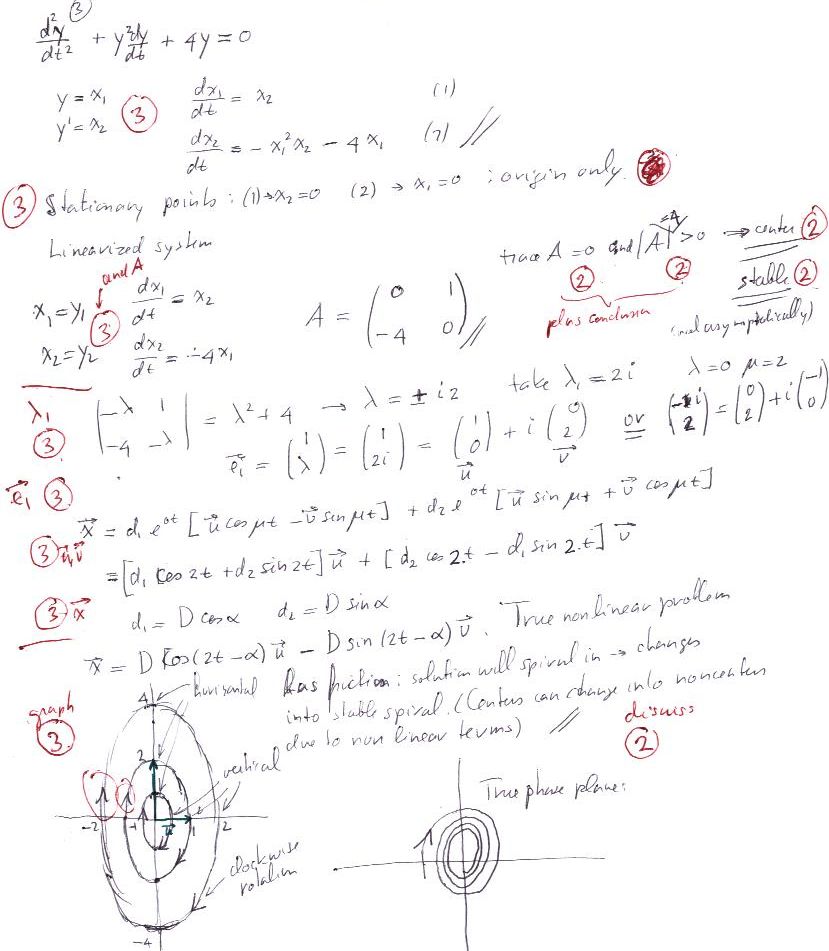 ③
d²y/dt² + y² dy/dt + 4y = 0
y = x₁ ③ dx₁/dt = x₂ (1)
y' = x₂ dx₂/dt = - x₁²x₂ - 4x₁ (2) //
③ Stationary points: (1)→x₂=0 (2) → x₁=0 : origin only.
Linearized system
trace A = 0 and |A| =4 >0 ⇒ center ②
② ② stable ②
plus conclusion (not asymptotically)
and A
x₁=y₁ dx₁/dt = x₂ A = ( 0 1 ; -4 0 ) //
③
x₂=y₂ dx₂/dt = -4x₁
λ₁ | -λ 1 ; -4 -λ | = λ²+4 → λ = ± i2 take λ₁ = 2i λ=0 μ=2
③ e⃗₁ = (1 ; λ) = (1 ; 2i) = (1 ; 0) + i (0 ; 2) or (-i ; 2) = (0 ; 2) + i (-1 ; 0)
u⃗ v⃗
e⃗₁ ③
x⃗ = d₁ e^{0t} [u⃗ cos μt - v⃗ sin μt] + d₂ e^{0t} [u⃗ sin μt + v⃗ cos μt]
③ u⃗,v⃗ = [d₁ cos 2t + d₂ sin 2t] u⃗ + [d₂ cos 2t - d₁ sin 2t] v⃗
③ x⃗ d₁ = D cos α d₂ = D sin α
x⃗ = D cos(2t-α) u⃗ - D sin(2t-α) v⃗. True nonlinear problem
has friction: solution will spiral in → changes
into stable spiral. (Centers can change into noncenters
due to non linear terms) //
discuss
②
graph
③
horizontal
vertical
clockwise
rotation
4
2
-2 -1 1 2
u⃗
-4
True phase plane: